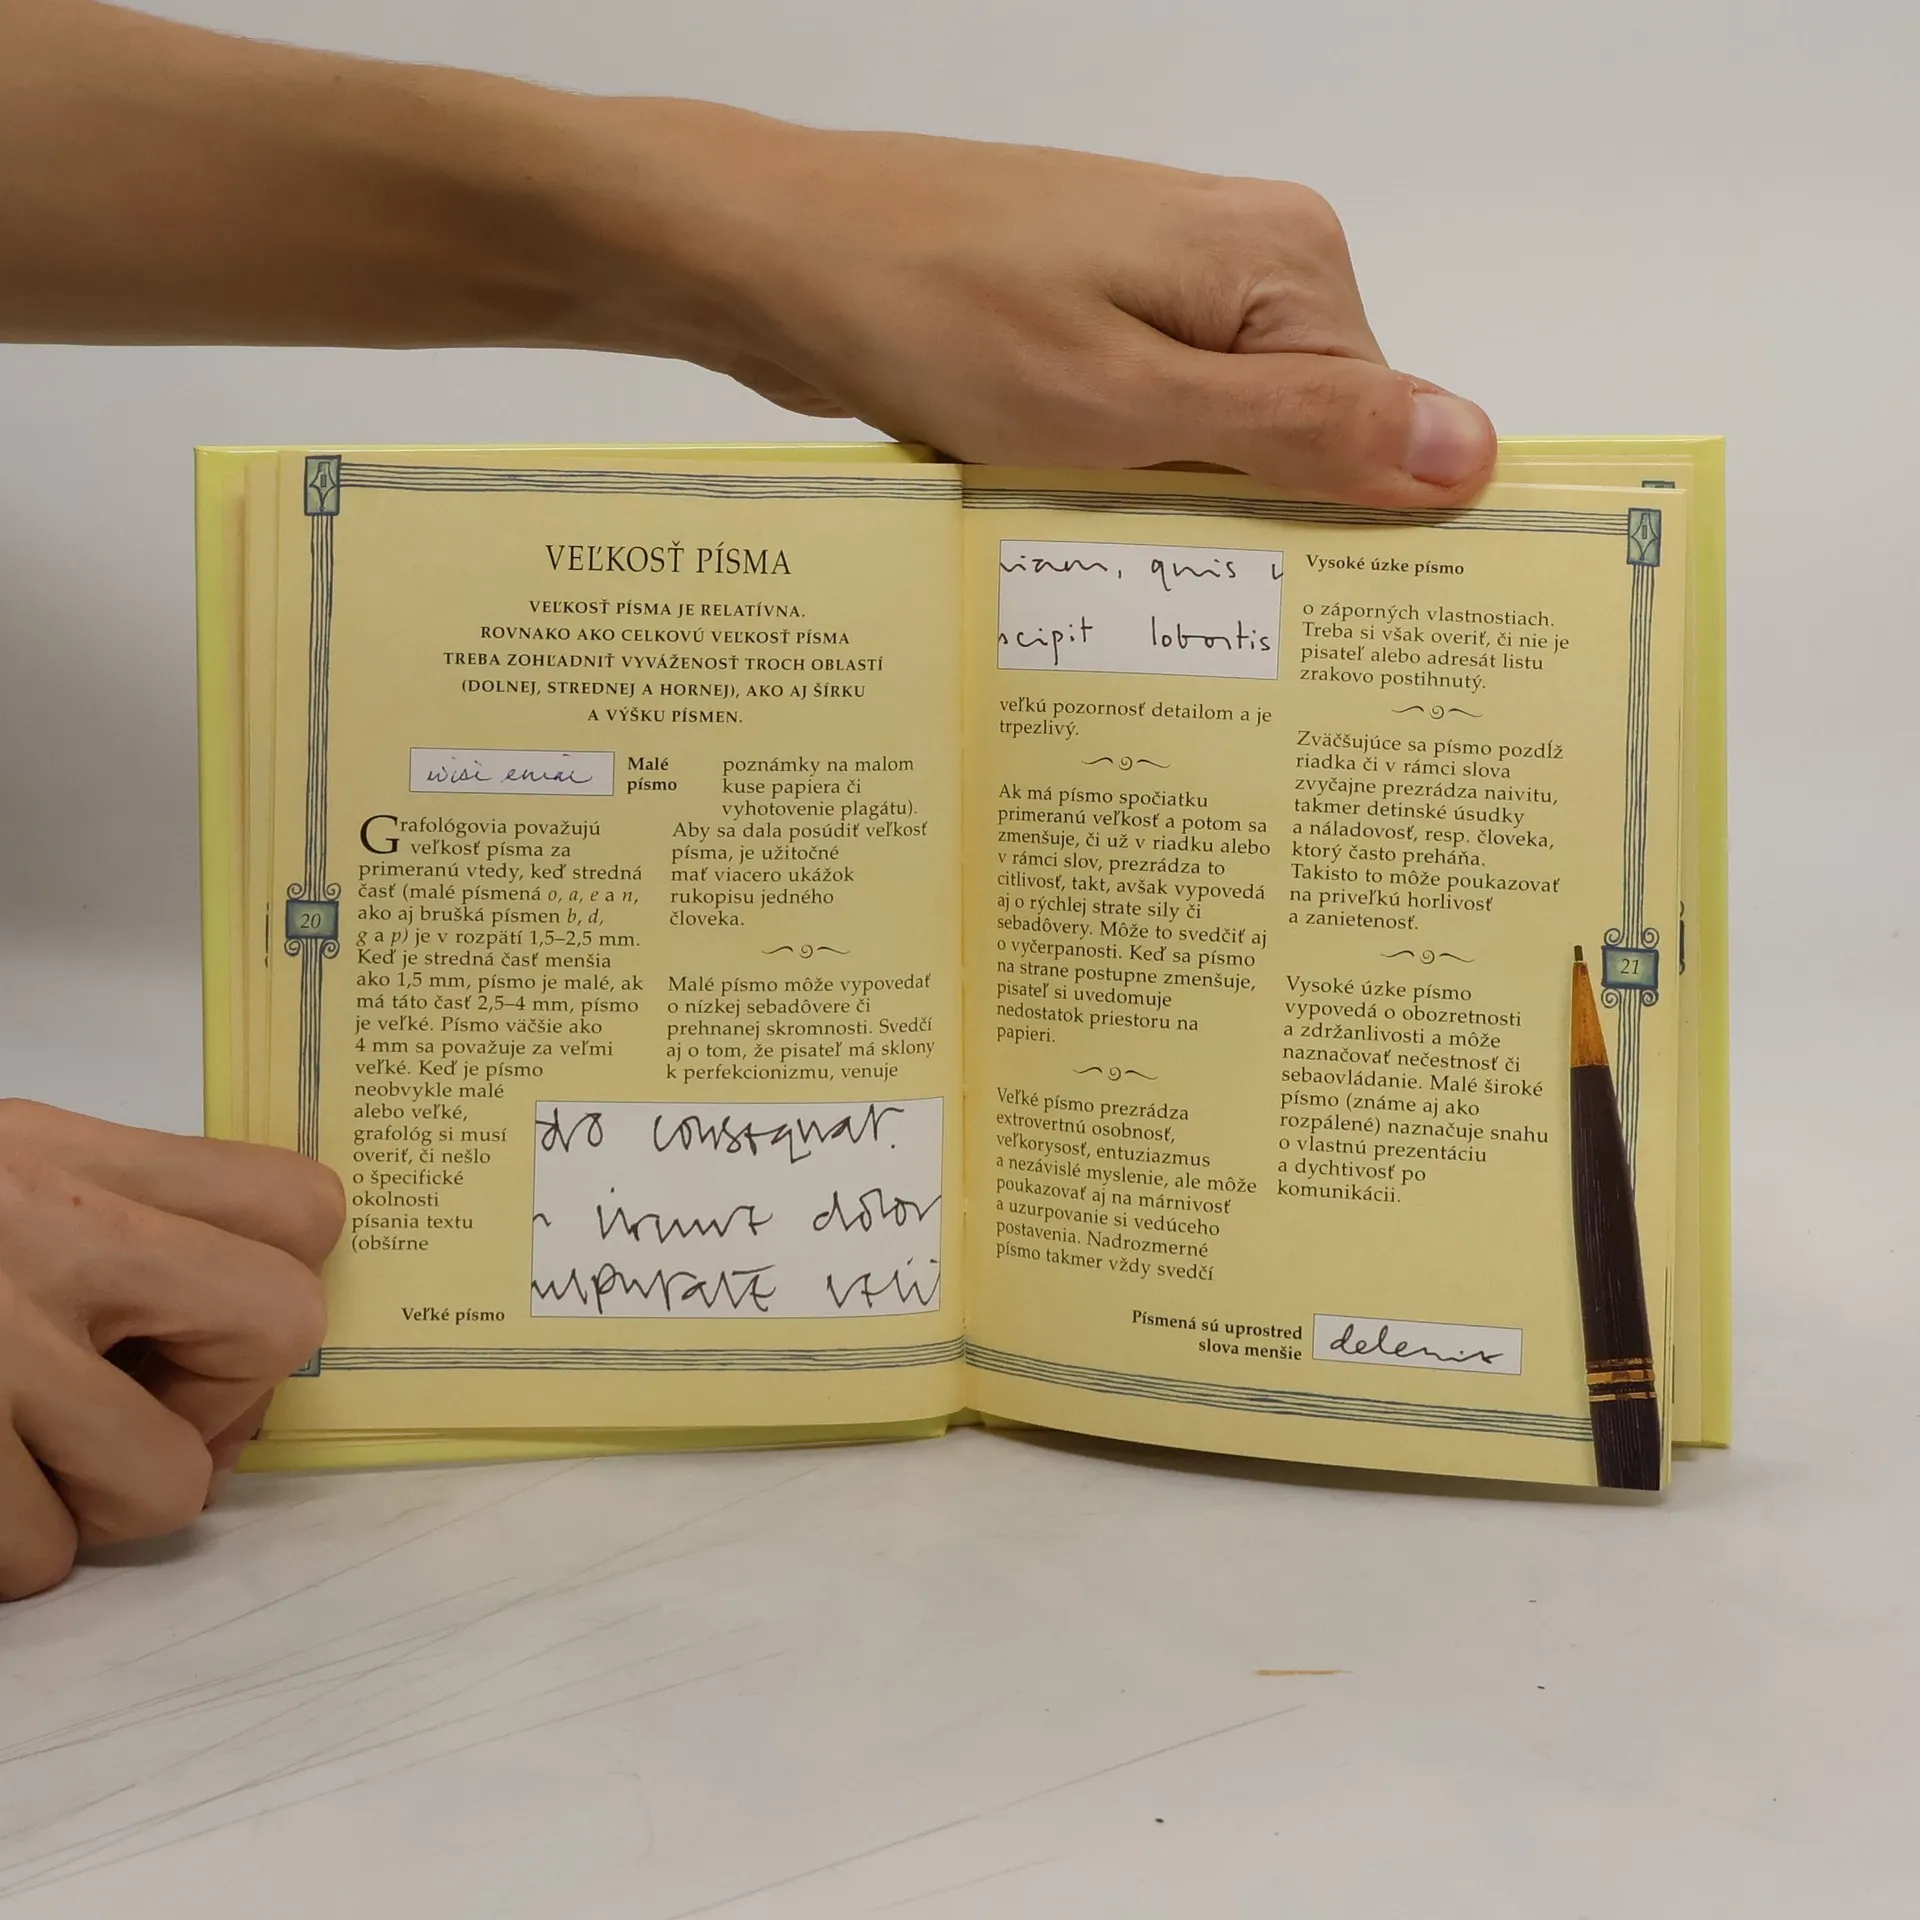 VEĽKOSŤ PÍSMA
VEĽKOSŤ PÍSMA JE RELATÍVNA.
ROVNAKO AKO CELKOVÚ VEĽKOSŤ PÍSMA
TREBA ZOHĽADNIŤ VYVÁŽENOSŤ TROCH OBLASTÍ
(DOLNEJ, STREDNEJ A HORNEJ), AKO AJ ŠÍRKU
A VÝŠKU PÍSMEN.
wisi eniai
Malé
písmo
Grafológovia považujú
veľkosť písma za
primeranú vtedy, keď stredná
časť (malé písmená o, a, e a n,
ako aj brušká písmen b, d,
g a p) je v rozpätí 1,5–2,5 mm.
Keď je stredná časť menšia
ako 1,5 mm, písmo je malé, ak
má táto časť 2,5–4 mm, písmo
je veľké. Písmo väčšie ako
4 mm sa považuje za veľmi
veľké. Keď je písmo
neobvykle malé
alebo veľké,
grafológ si musí
overiť, či nešlo
o špecifické
okolnosti
písania textu
(obšírne
poznámky na malom
kuse papiera či
vyhotovenie plagátu).
Aby sa dala posúdiť veľkosť
písma, je užitočné
mať viacero ukážok
rukopisu jedného
človeka.
Malé písmo môže vypovedať
o nízkej sebadôvere či
prehnanej skromnosti. Svedčí
aj o tom, že pisateľ má sklony
k perfekcionizmu, venuje
do consequat.
irunt dolor
velit
Veľké písmo
20
niam, quis
scipit lobortis
Vysoké úzke písmo
veľkú pozornosť detailom a je
trpezlivý.
Ak má písmo spočiatku
primeranú veľkosť a potom sa
zmenšuje, či už v riadku alebo
v rámci slov, prezrádza to
citlivosť, takt, avšak vypovedá
aj o rýchlej strate sily či
sebadôvery. Môže to svedčiť aj
o vyčerpanosti. Keď sa písmo
na strane postupne zmenšuje,
pisateľ si uvedomuje
nedostatok priestoru na
papieri.
Veľké písmo prezrádza
extrovertnú osobnosť,
veľkorysosť, entuziazmus
a nezávislé myslenie, ale môže
poukazovať aj na márnivosť
a uzurpovanie si vedúceho
postavenia. Nadrozmerné
písmo takmer vždy svedčí
o záporných vlastnostiach.
Treba si však overiť, či nie je
pisateľ alebo adresát listu
zrakovo postihnutý.
Zväčšujúce sa písmo pozdĺž
riadka či v rámci slova
zvyčajne prezrádza naivitu,
takmer detinské úsudky
a náladovosť, resp. človeka,
ktorý často preháňa.
Takisto to môže poukazovať
na priveľkú horlivosť
a zanietenosť.
Vysoké úzke písmo
vypovedá o obozretnosti
a zdržanlivosti a môže
naznačovať nečestnosť či
sebaovládanie. Malé široké
písmo (známe aj ako
rozpálené) naznačuje snahu
o vlastnú prezentáciu
a dychtivosť po
komunikácii.
Písmená sú uprostred
slova menšie
delenit
21